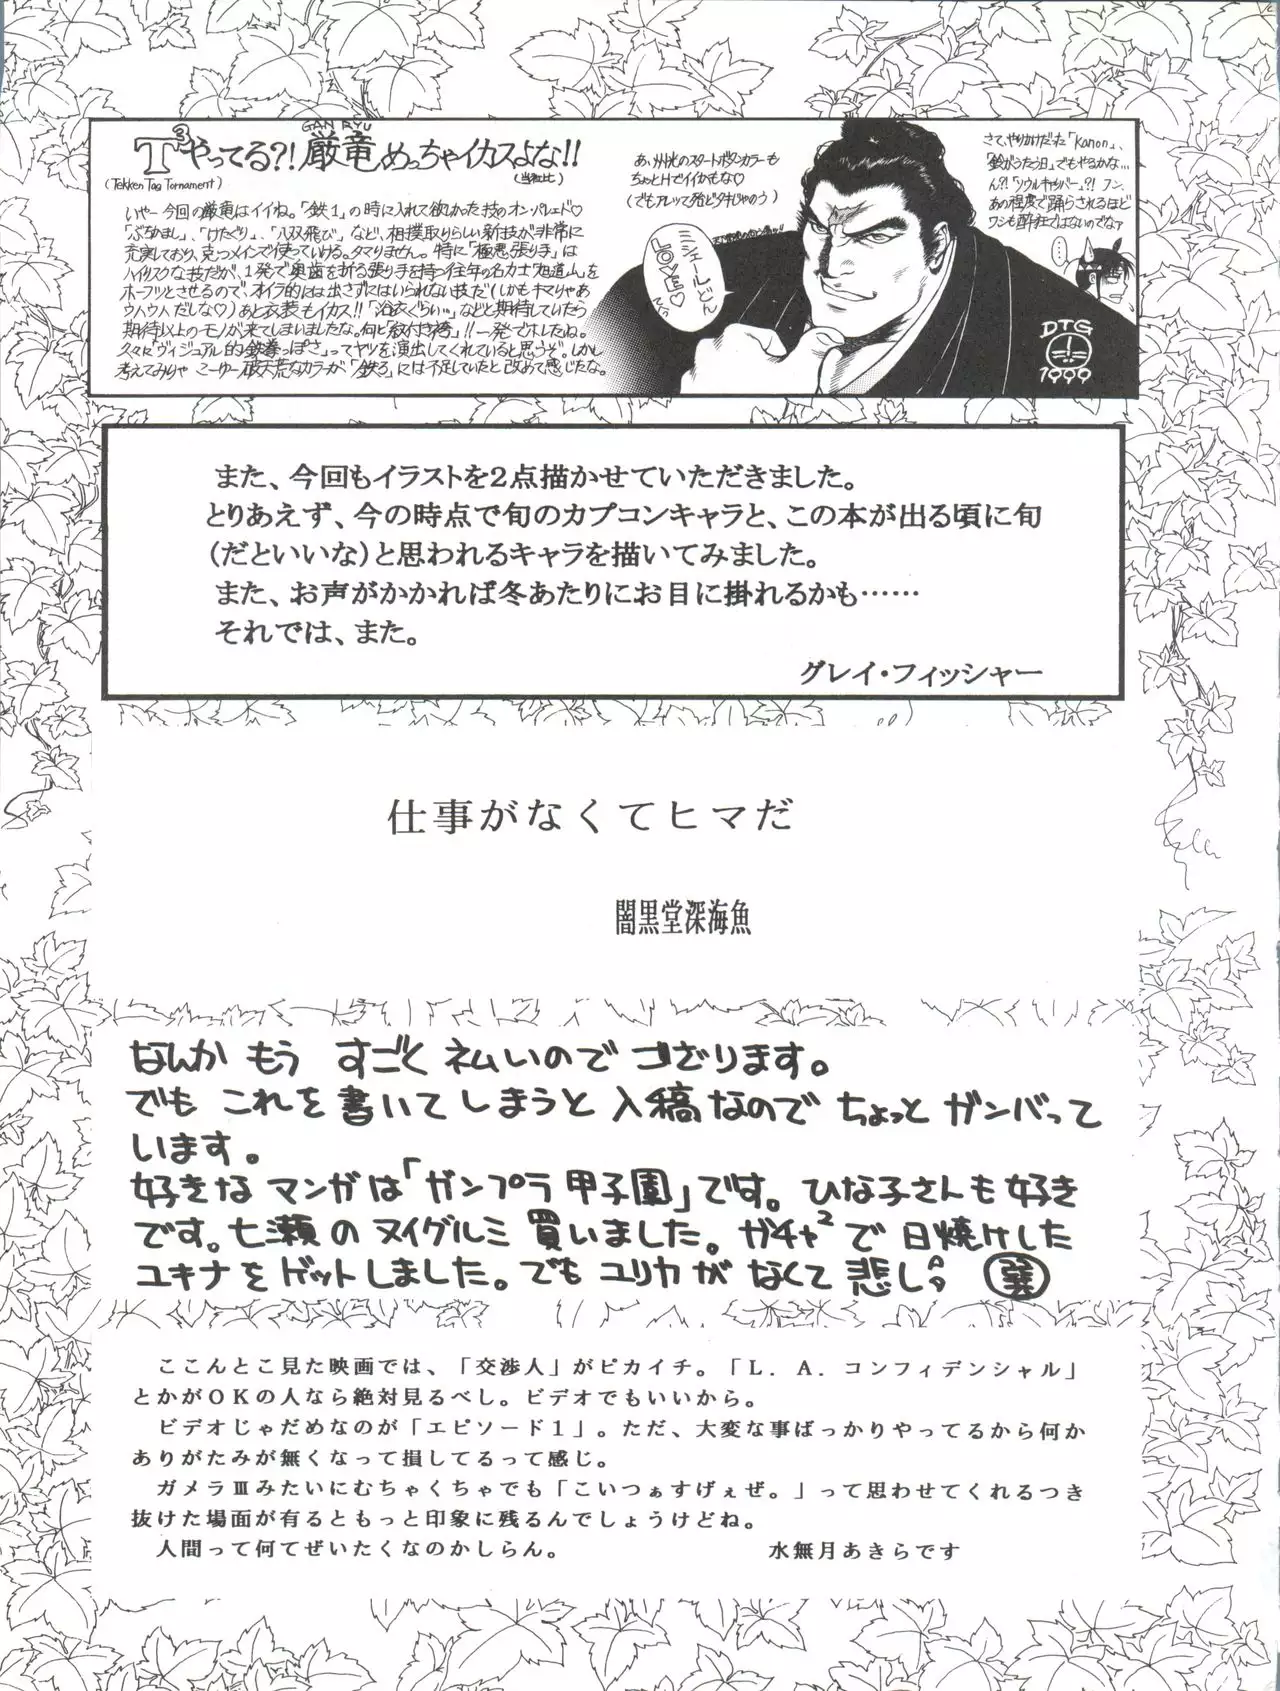 GAN RYU
T³やってる?!厳竜めっちゃイカスよな!!
(Tekken Tag Tornament)
(当社比)
いやー今回の厳竜はイイね。「鉄1」の時に入れて欲しかった技のオンパレェド♡
「ぶちかまし」、「けたぐり」、「八双飛び」など、相撲取りらしい新技が非常に
充実しており、克つメインで使っていける。タマりません。特に「極悪張り手」は
ハイリスクな技だが、1発で奥歯を折る張り手を持つ往年の名力士「旭道山」を
ホーフツとさせるので、オイラ的には出さずにはいられない技だ(しかもキマりゃあ
ウハウハだしな♡)あと衣装もイカス!!「浴衣ぐらい…」などと期待していたら
期待以上のモノが来てしまいましたな。何と「紋付き袴」!!一発でホレたね。
久々に「ヴィジュアル的鉄拳っぽさ」ってヤツを演出してくれていると思うぞ。しかし
考えてみりゃ こーゆー破天荒なカラーが「鉄3」には不足していたと改めて感じたな。
あ、州光のスタートボタンカラーも
ちょっとHでイイかもな♡
(でもアレって殆どタキじゃのう)
ミシェールさん
LOVE♡
さて、やりかけだった「Kanon」、
「鈴がうたう日」でもやるかな…
ん?!「ソウルキャリバー」?!フン、
あの程度で踊らされるほど
ワシも酔狂ではないのでなァ
……
DTG
1999
また、今回もイラストを2点描かせていただきました。
とりあえず、今の時点で旬のカプコンキャラと、この本が出る頃に旬
(だといいな)と思われるキャラを描いてみました。
また、お声がかかれば冬あたりにお目に掛れるかも……
それでは、また。
グレイ・フィッシャー
仕事がなくてヒマだ
闇黒堂深海魚
なんか もう すごく ネムいのでござります。
でも これを書いてしまうと入稿なのでちょっとガンバって
います。
好きなマンガは「ガンプラ甲子園」です。ひな子さんも好き
です。七瀬のヌイグルミ買いました。ガチャ²で日焼けした
ユキナをゲットしました。でもユリカがなくて悲し。
ここんとこ見た映画では、「交渉人」がピカイチ。「L.A.コンフィデンシャル」
とかがOKの人なら絶対見るべし。ビデオでもいいから。
ビデオじゃだめなのが「エピソード1」。ただ、大変な事ばっかりやってるから何か
ありがたみが無くなって損してるって感じ。
ガメラⅢみたいにむちゃくちゃでも「こいつぁすげぇぜ。」って思わせてくれるつき
抜けた場面が有るともっと印象に残るんでしょうけどね。
人間って何てぜいたくなのかしらん。
水無月あきらです